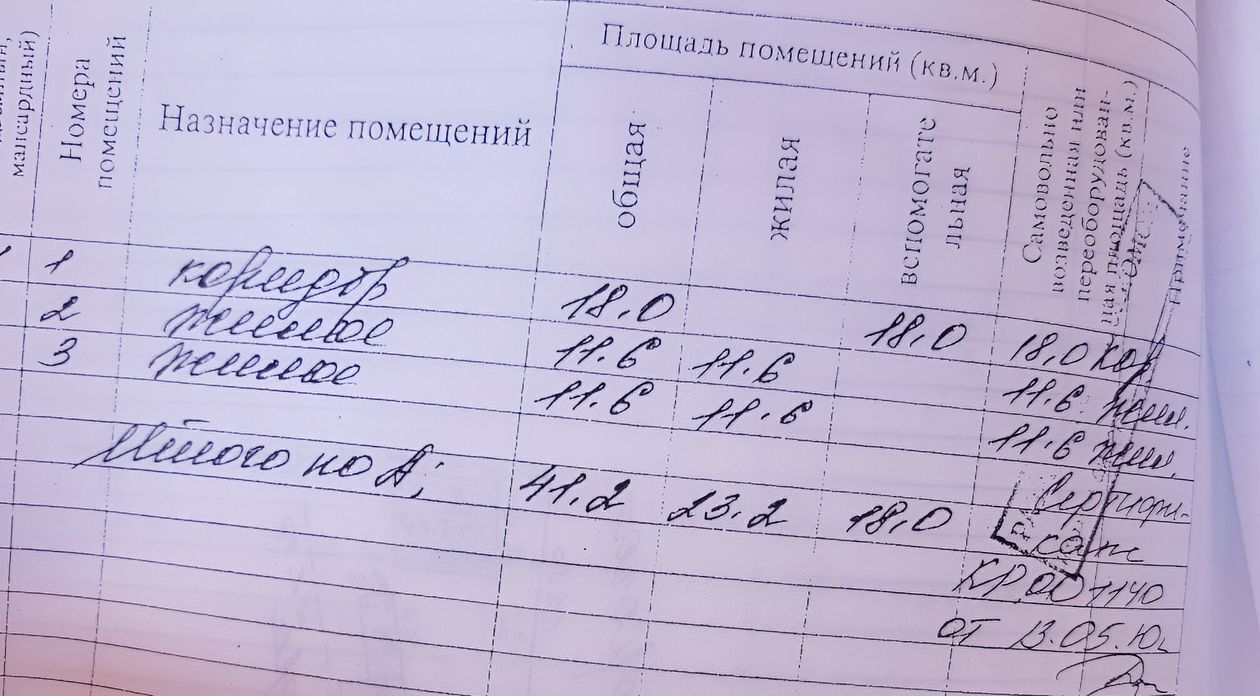 мансардный)
Номера
помещений
Назначение помещений
Площадь помещений (кв.м.)
общая
жилая
вспомогате
льная
Самовольно
возведенная или
переоборудован-
ная площадь (кв.м.)
Примечание
1 коридор 18.0 18.0 18.0 кор
2 жилое 11.6 11.6 11.6 жил.
3 жилое 11.6 11.6 11.6 жил.
Итого по А; 41.2 23.2 18.0
Сертифи-
кат
КР 001140
от 13.05.10г